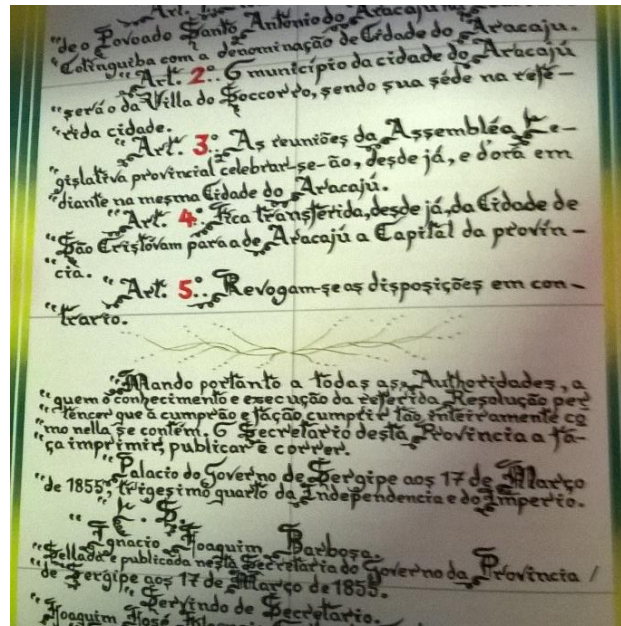 "Art.
"de o Povoado Santo Antonio do Aracaju na
"Cotinguiba com a denominação de Cidade do Aracaju.
"Art. 2º. O município da cidade do Aracajú
"será o da Villa do Soccorro, sendo sua séde na refe-
"rida cidade.
"Art. 3º. As reuniões da Assembléa Le-
gislativa provincial celebrar-se-ão, desde já, e d'ora em
"diante na mesma Cidade do Aracajú.
"Art. 4º. Fica transferida, desde já, da Cidade de
"São Cristóvam para a de Aracajú a Capital da provín-
"cia.
"Art. 5º. Revogam-se as disposições em con-
"trario.
"Mando portanto a todas as Authoridades, a
"quem o conhecimento e execução da referida Resolução per
"tencer que a cumprão e fação cumprir tão inteiramente co
"mo nella se contém. O Secretario desta Provincia a fa-
"ça imprimir, publicar e correr.
"Palacio do Governo de Sergipe aos 17 de Março
"de 1855, trigesimo quarto da Independencia e do Imperio.
"L. S.
"Ignacio Joaquim Barbosa.
"Sellada e publicada nesta Secretaria do Governo da Provincia /
"de Sergipe aos 17 de Março de 1855.
"Servindo de Secretario.
"Joaquim José